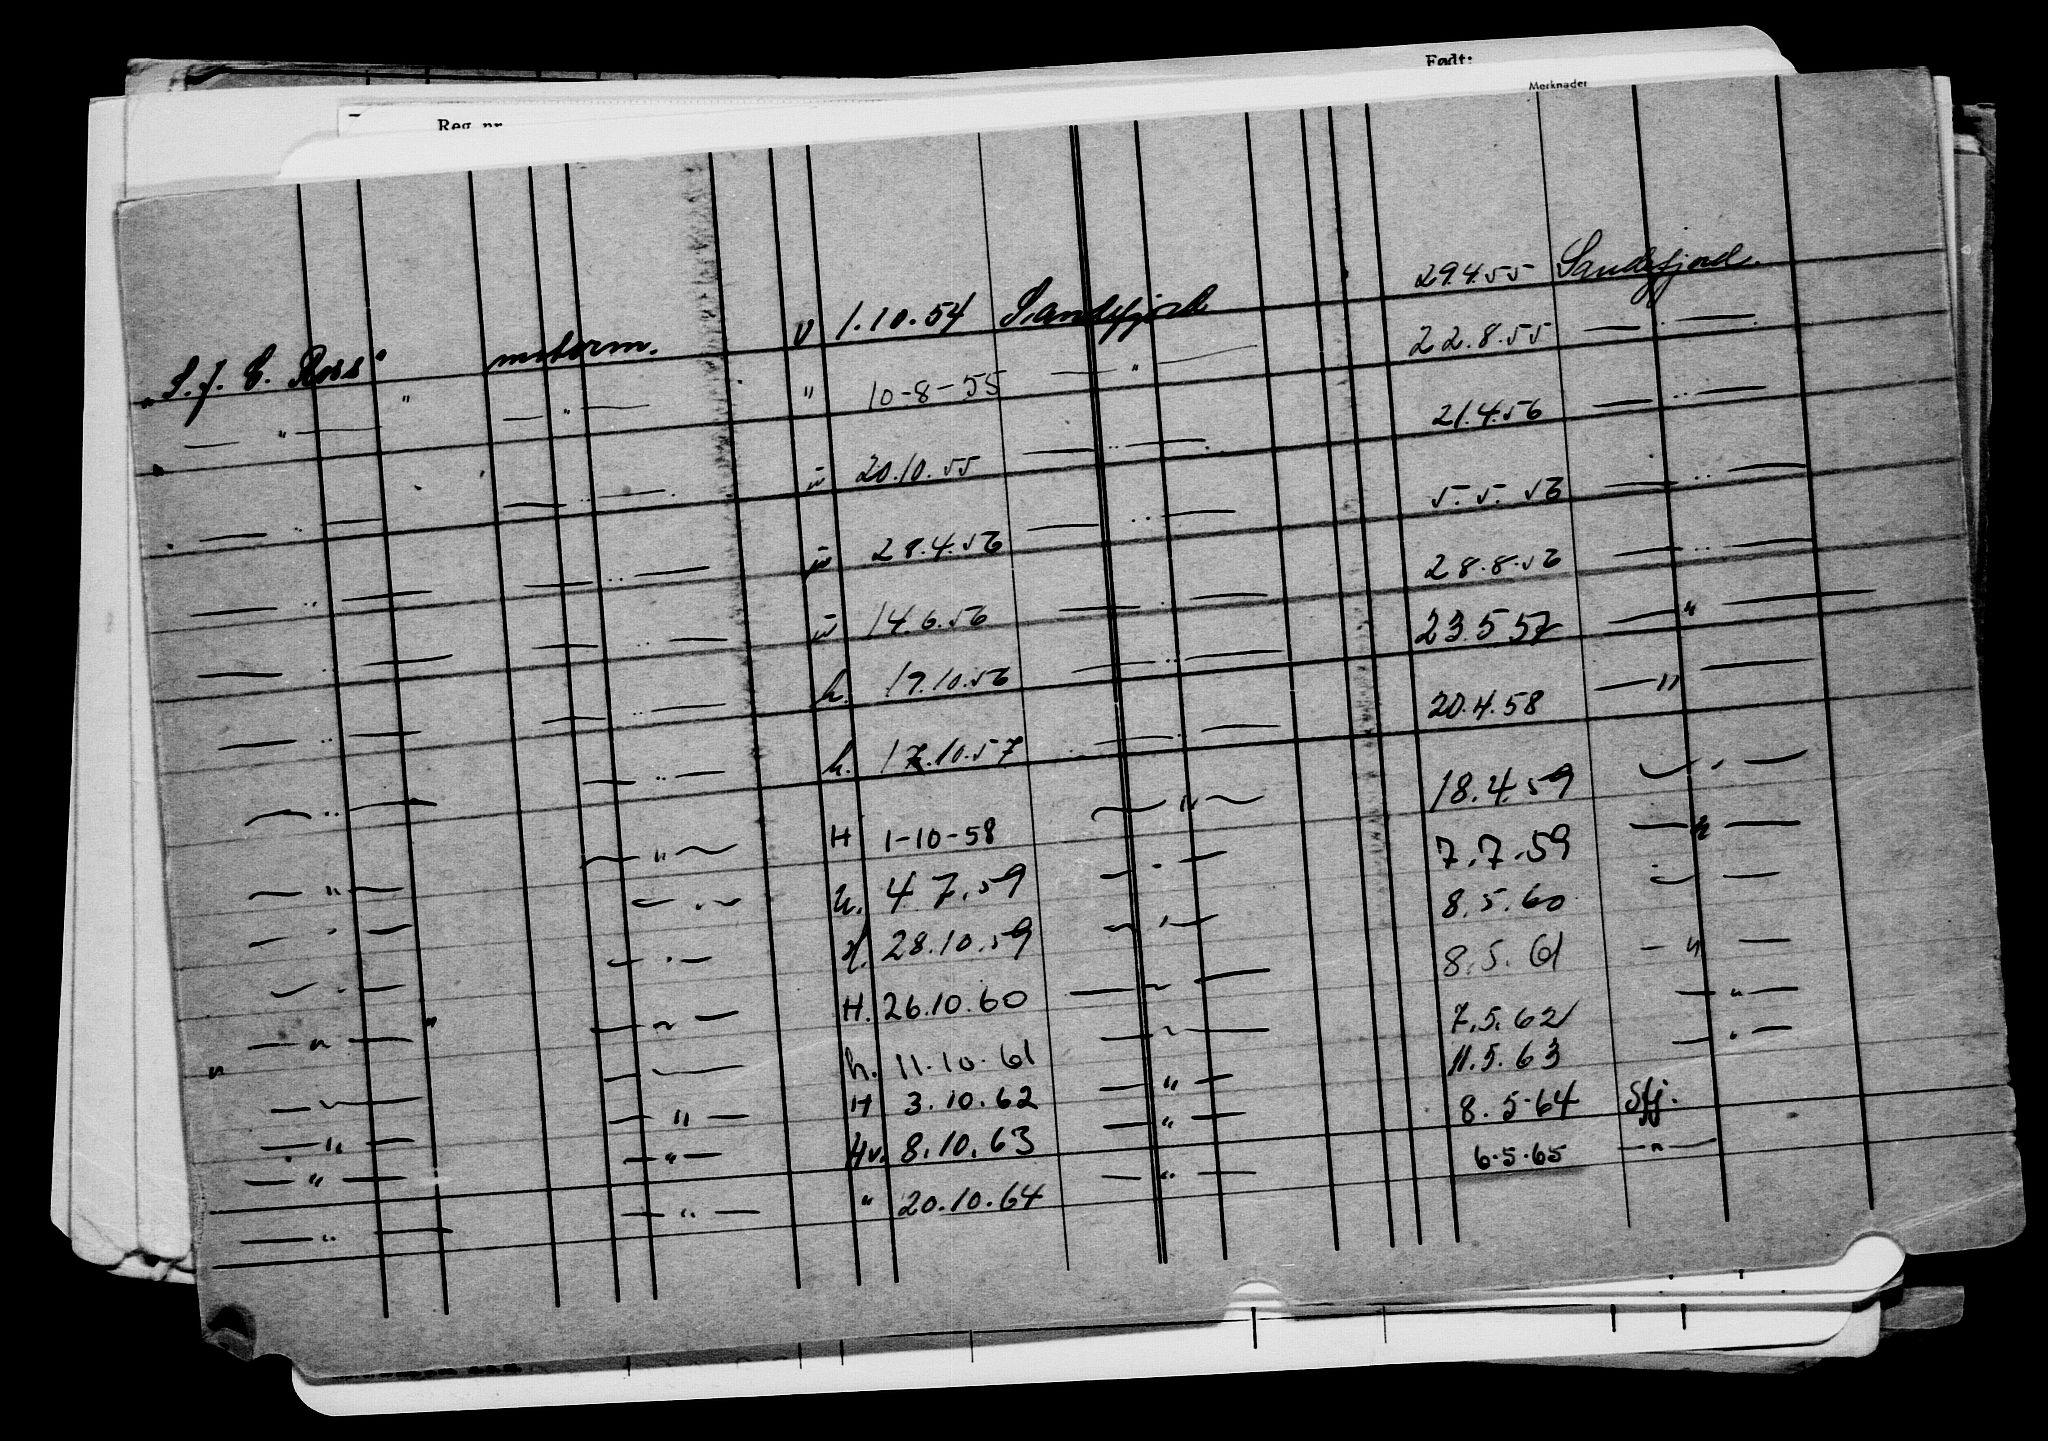 Født:
Merknader
Reg. nr.
„S. J. C. Ross" motorm. v 1.10.54 Sandefjord 29.4.55 Sandefjord.
— " — " — " — " 10-8-55 — " — 22.8.55 — " —
— " — — " — " 20.10.55 — " — 21.4.56 — " —
— " — — " — " 28.4.56 — " — 5.5.56 — " —
— " — — " — " 14.6.56 — " — 28.8.56 — " —
— " — — " — h. 17.10.56 — " — 23.5 57 — " —
— " — — " — h. 17.10.57 — " — 20.4.58 — " —
— " — — " — H 1-10-58 — " — 18.4.59 — " —
— " — — " — h. 4 7.59 — " — 7.7.59 — " —
— " — — " — H. 28.10.59 — " — 8.5.60 — " —
— " — — " — H. 26.10.60 — " — 8.5.61 — " —
— " — " — " — h. 11.10.61 — " — 7.5.62 — " —
— " — — " — H 3.10.62 — " — 11.5.63 — " —
— " — — " — Hv. 8.10.63 — " — 8.5-64 Sfj.
— " — — " — " 20.10.64 — " — 6.5.65 — " —